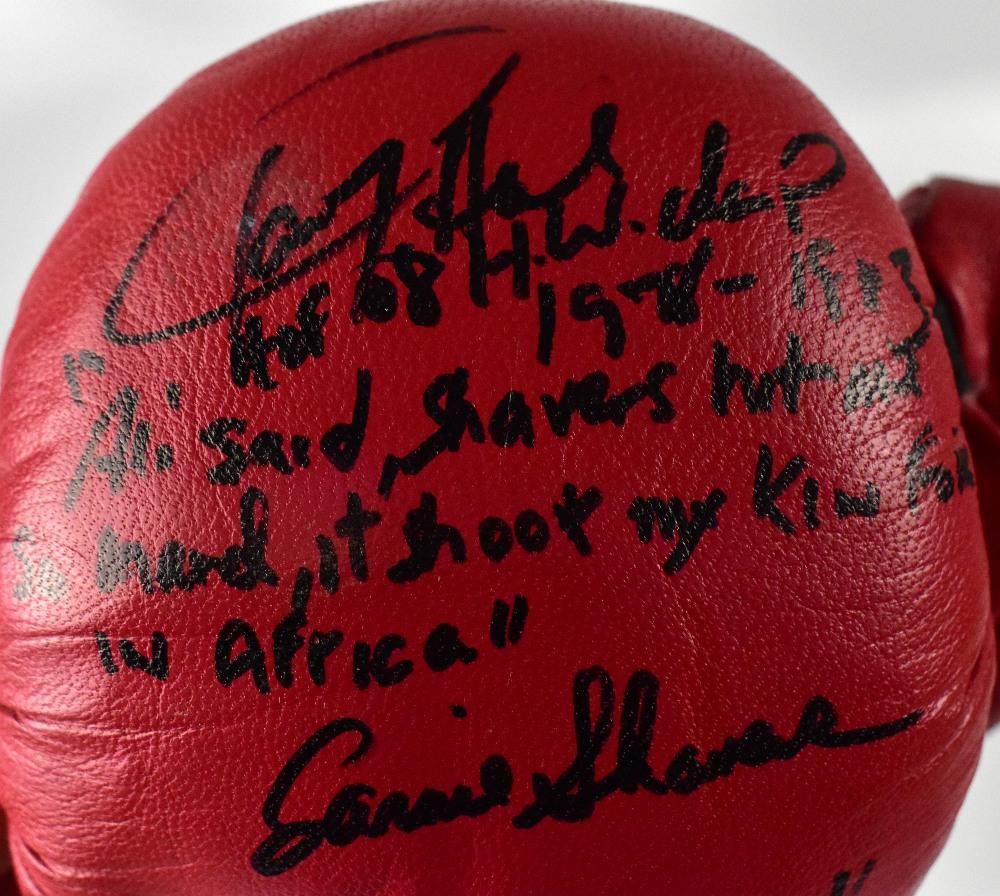 Larry Holmes
H.W. champ
HOF 08 1978-1983
"Ali said, shavers hit me
So Hard, it shook my Kin
in Africa"
Earnie Shavers
"